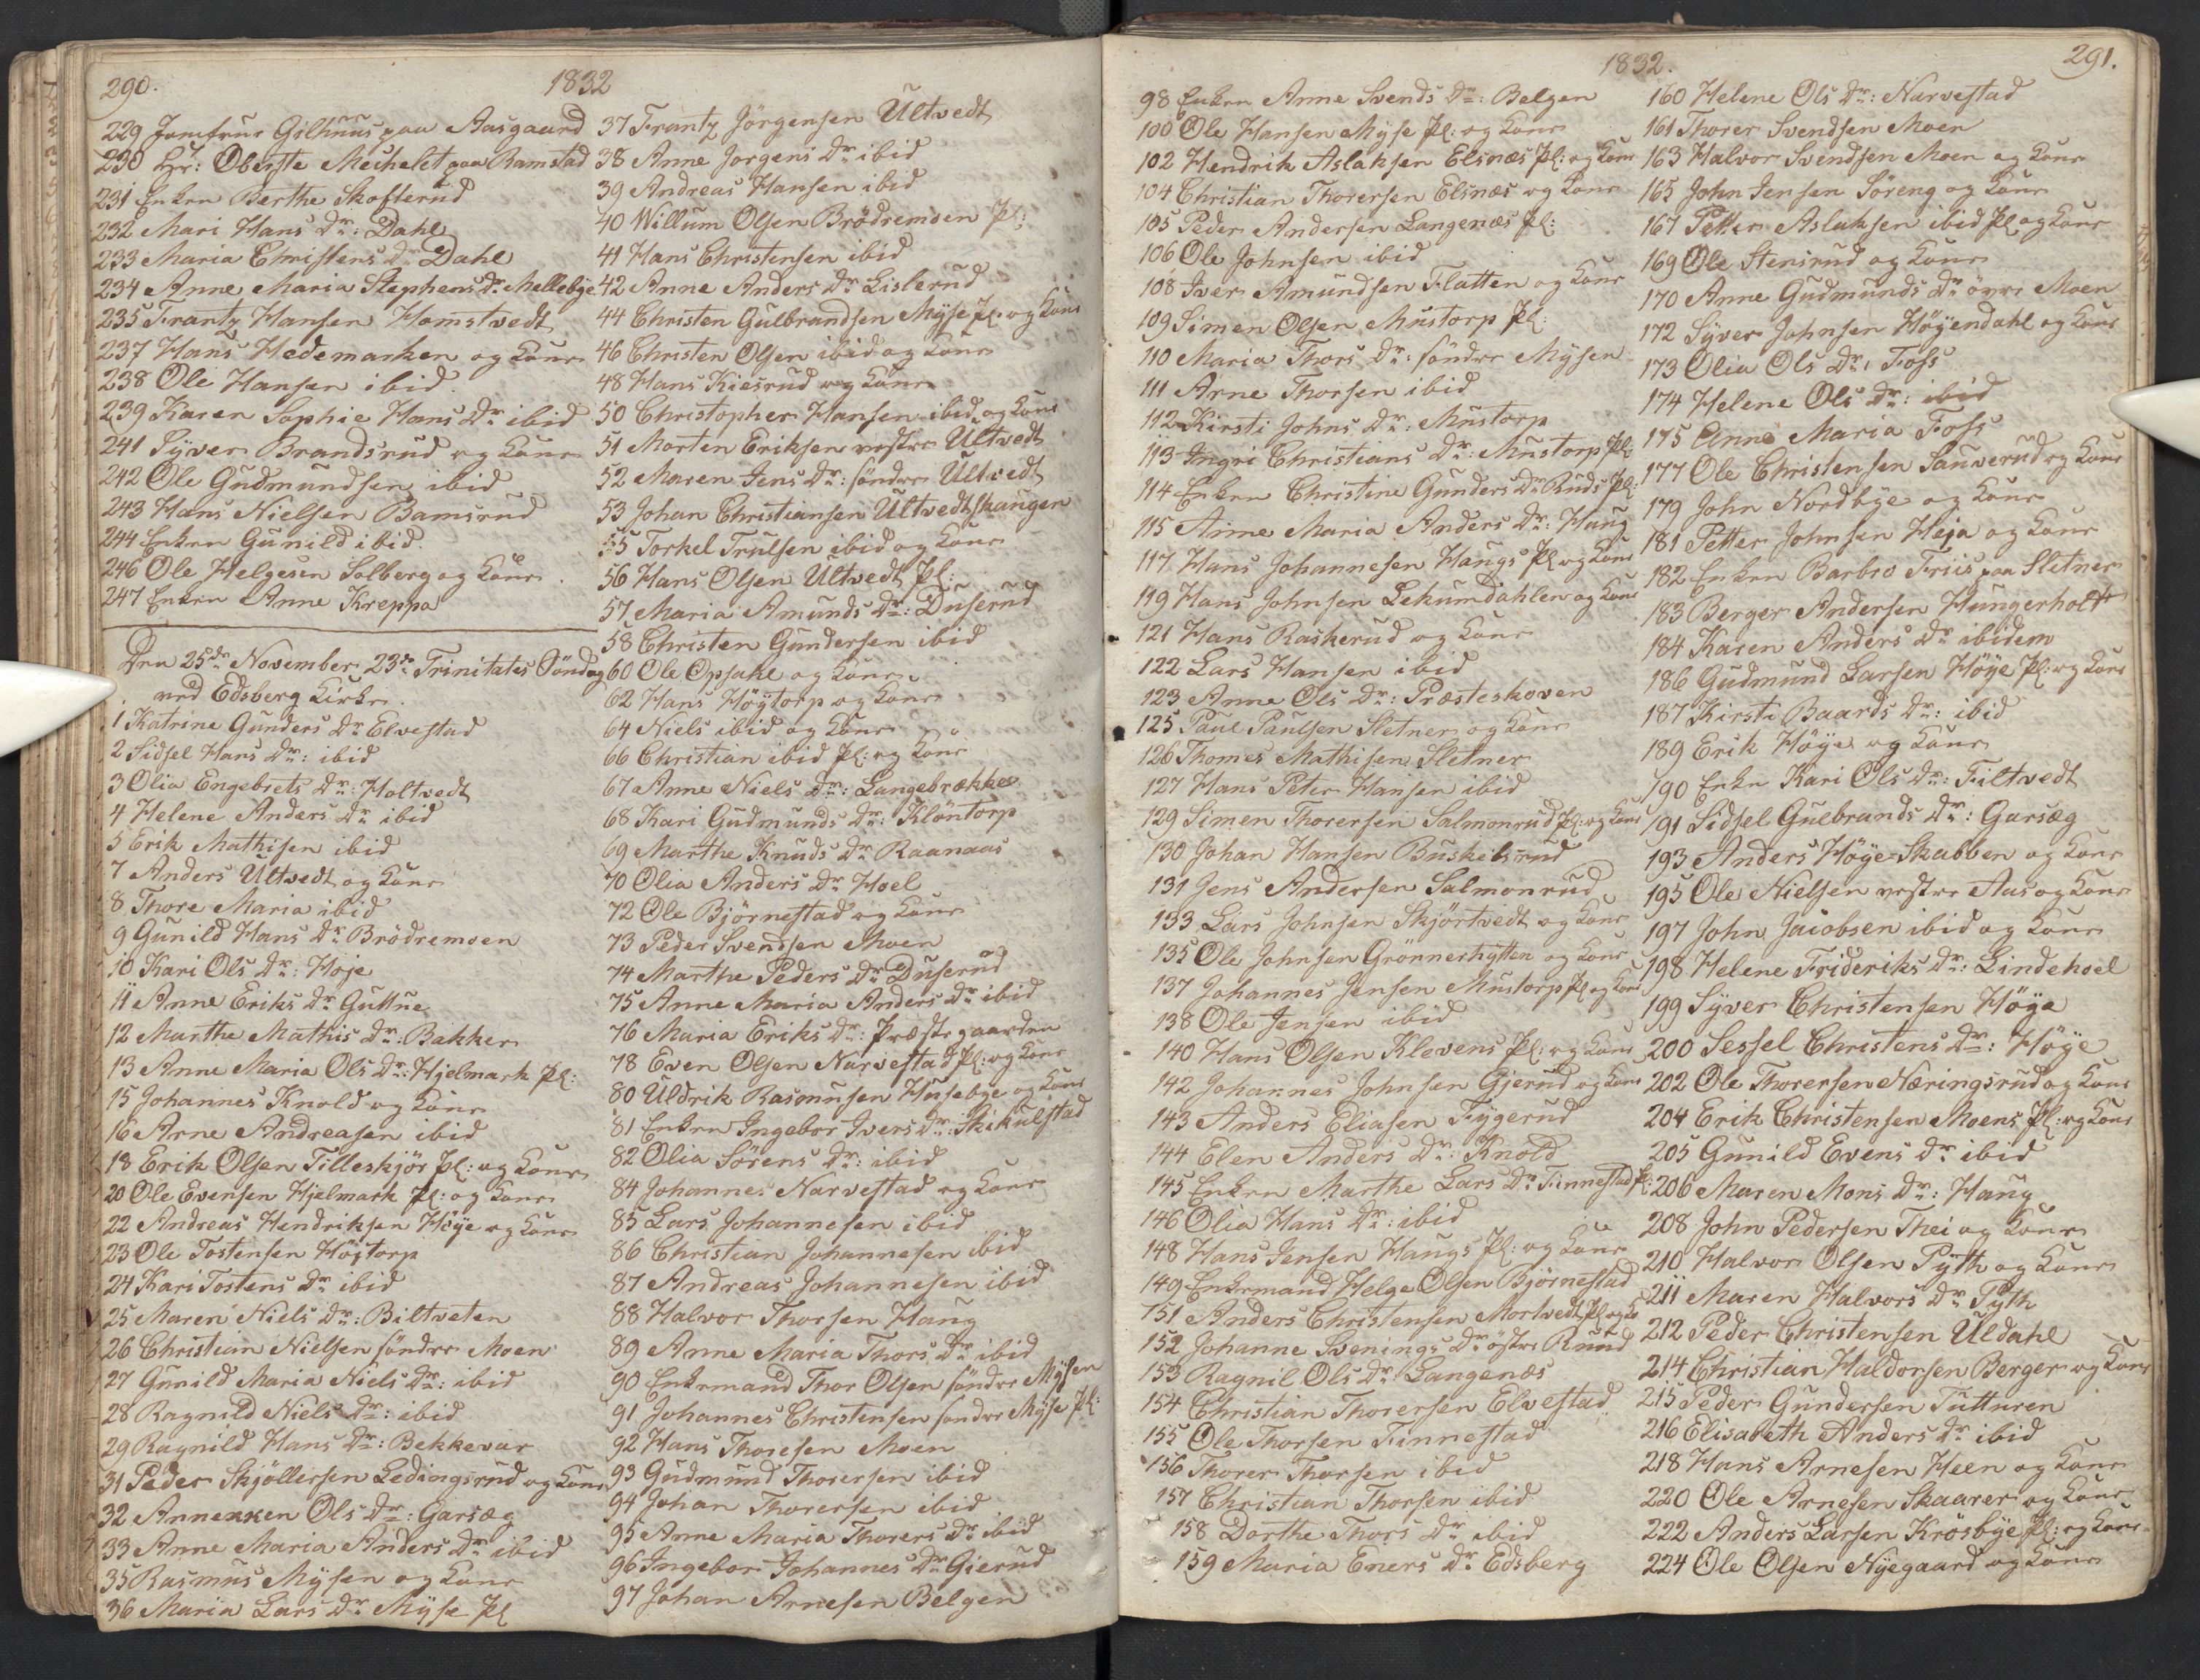 290.
1832
229 Jomfrue Gilhuus paa Aasgaard
230 Hr: Oberste Mechelet paa Ramstad
231 Enken Berthe Skofterud
232 Mari Hans Dr: Dahl
233 Maria Christens Dr Dahl
234 Anne Maria Stephens Dr Mellebye
235 Frantz Hansen Homstvedt
237 Hans Hedemarken og Kone
238 Ole Hansen ibid
239 Karen Sophie Hans Dr ibid
241 Syver Brandsrud og Kone
242 Ole Gudmundsen ibid
243 Hans Nielsen Bamsrud
244 Enken Gunild ibid
246 Ole Helgesen Solberg og Kone
247 Enken Anne Kreppa
Den 25de November 23de Trinitates Söndag
ved Edsberg Kirke
1 Katrine Gunders Dr Elvestad
2 Sidsel Hans Dr: ibid
3 Olia Engebrets Dr: Holtvedt
4 Helene Anders Dr ibid
5 Erik Mathisen ibid
7 Anders Ultvedt og Kone
8 Thore Maria ibid
9 Gunild Hans Dr Brödremoen
10 Kari Ols Dr: Hoje
11 Anne Eriks Dr Guttue
12 Marthe Mathis Dr: Bakken
13 Anne Maria Ols Dr: Hjelmark Pl:
15 Johannes Knold og Kone
16 Arne Andreasen ibid
18 Erik Olsen Tilleskjör Pl: og Kone
20 Ole Evensen Hjelmark Pl: og Kone
22 Andreas Hendriksen Höye og Kone
23 Ole Tostensen Höytorp
24 Kari Tostens Dr ibid
25 Maren Niels Dr: Biltveten
26 Christian Nielsen söndre Moen
27 Gunild Maria Niels Dr: ibid
28 Ragnild Niels Dr: ibid
29 Ragnild Hans Dr: Bekkevar
31 Peder Skjöllersen Ledingsrud og Kone
32 Annekken Ols Dr: Garsæg
33 Anne Maria Anders Dr ibid
35 Rasmus Mysen og Kone
36 Maria Lars Dr Myse Pl
37 Frantz Jörgensen Ultvedt
38 Anne Jorgens Dr ibid
39 Andreas Hansen ibid
40 Willum Olsen Brödremoen Pl:
41 Hans Christensen ibid
42 Anne Anders Dr Lislerud
44 Christen Gulbrandsen Myse Pl: og Kone
46 Christen Olsen ibid og Kone
48 Hans Kiesrud og Kone
50 Christopher Hansen ibid og Kone
51 Morten Eriksen vestre Ultvedt
52 Maren Jens Dr: söndre Ultvedt
53 Johan Christiansen Ultvedtskaugen
55 Torkel Trulsen ibid og Kone
56 Hans Olsen Ultvedt Pl:
57 Maria Amunds Dr: Duserud
58 Christen Gundersen ibid
60 Ole Opsahl og Kone
62 Hans Höytorp og Kone
64 Niels ibid og Kone
66 Christian ibid Pl: og Kone
67 Anne Niels Dr: Langebrække
68 Kari Gudmunds Dr: Klöntorp
69 Marthe Knuds Dr Raanaas
70 Olia Anders Dr Hoel
72 Ole Björnestad og Kone
73 Peder Svendsen Moen
74 Marthe Peders Dr Duserud
75 Anne Maria Anders Dr ibid
76 Maria Eriks Dr: Præstegaarden
78 Even Olsen Narvestad Pl: og Kone
80 Uldrik Rasmusen Husebye og Kone
81 Enken Ingebor Ivers Dr: Skikulstad
82 Olia Sörens Dr: ibid
84 Johannes Narvestad og Kone
85 Lars Johannesen ibid
86 Christian Johannesen ibid
87 Andreas Johannesen ibid
88 Halvor Thorsen Haug
89 Anne Maria Thors Dr ibid
90 Enkemand Thor Olsen söndre Mysen
91 Johannes Christensen söndre Myse Pl:
92 Hans Thoresen Moen
93 Gudmund Thorersen ibid
94 Johan Thorersen ibid
95 Anne Maria Thorers Dr ibid
96 Ingebor Johannes Dr Gierud
97 Johan Arnesen Belgen
1832.
291.
98 Enken Anne Svends Dr: Belgen
100 Ole Hansen Myse Pl: og Kone
102 Hendrik Aslaksen Elsnæs Pl: og Kone
104 Christian Thorersen Elsnæs og Kone
105 Peder Andersen Langenæs Pl:
106 Ole Johnsen ibid
108 Iver Amundsen Flatten og Kone
109 Simen Olsen Mustorp Pl:
110 Maria Thors Dr: söndre Mysen
111 Arne Thorsen ibid
112 Kirsti Johns Dr: Mustorp
113 Ingri Christians Dr: Mustorp Pl:
114 Enken Christine Gunders Dr Ruds Pl:
115 Anne Maria Anders Dr: Haug
117 Hans Johannesen Haugs Pl og Kone
119 Hans Johnsen Lekumdahlen og Kone
121 Hans Raskerud og Kone
122 Lars Hansen ibid
123 Anne Ols Dr: Præsteskoven
125 Paul Paulsen Sletner og Kone
126 Thomes Mathisen Sletner
127 Hans Peter Hansen ibid
129 Simen Thorersen Salmonrud Pl: og Kone
130 Johan Hansen Buskelsrud
131 Jens Andersen Salmonrud
133 Lars Johnsen Skjörtvedt og Kone
135 Ole Johnsen Grönnerhytten og Kone
137 Johannes Jensen Mustorp Pl og Kone
138 Ole Jensen ibid
140 Hans Olsen Klevens Pl: og Kone
142 Johannes Johnsen Gjerud og Kone
143 Anders Eliasen Fygerud
144 Elen Anders Dr: Knold
145 Enken Marthe Lars Dr Finnestad Pl:
146 Olia Hans Dr: ibid
148 Hans Jensen Haugs Pl: og Kone
149 Enkemand Helge Olsen Björnestad
151 Anders Christensen Mortvedt Pl og Ko
152 Johanne Svenings Dr östre Ruud
153 Ragnil Ols Dr: Langenæs
154 Christian Thorersen Elvestad
155 Ole Thorsen Finnestad
156 Thorer Thorsen ibid
157 Christian Thorsen ibid
158 Dorthe Thors Dr ibid
159 Maria Eners Dr: Edsberg
160 Helene Ols Dr: Narvestad
161 Thorer Svendsen Moen
163 Halvor Svendsen Moen og Kone
165 John Jensen Söreng og Kone
167 Petter Aslaksen ibid Pl og Kone
169 Ole Stensrud og Kone
170 Anne Gudmunds Dr övre Moen
172 Syver Johnsen Höyendahl og Kone
173 Olia Ols Dr: Foss
174 Helene Ols Dr: ibid
175 Anne Maria Foss
177 Ole Christensen Sauverud og Kone
179 John Nordbye og Kone
181 Petter Johnsen Heja og Kone
182 Enken Barbro Friis paa Sletner
183 Berger Andersen Hungerholt
184 Karen Anders Dr ibidem
186 Gudmund Larsen Höye Pl: og Kone
187 Kirsti Baards Dr: ibid
189 Erik Höye og Kone
190 Enke Kari Ols Dr: Filtvedt
191 Sidsel Gulbrands Dr: Garsæg
193 Anders Höye-Skabben og Kone
195 Ole Nielsen vestre Aas og Kone
197 John Jacobsen ibid og Kone
198 Helene Frideriks Dr: Lindehoel
199 Syver Christensen Höye
200 Sessel Christens Dr: Höye
202 Ole Thorersen Næringsrud og Kone
204 Erik Christensen Moens Pl: og Kone
205 Gunild Evens Dr ibid
206 Maren Mons Dr: Haug
208 John Pedersen Thei og Kone
210 Halvor Olsen Pyth og Kone
211 Maren Halvors Dr Pyth
212 Peder Christensen Uldahl
214 Christian Haldorsen Berger og Kone
215 Peder Gundersen Tutturen
216 Elisabeth Anders Dr ibid
218 Hans Arnesen Heen og Kone
220 Ole Arnesen Skaarer og Kone
222 Anders Larsen Krösbye Pl: og Kone
224 Ole Olsen Nyegaard og Kone